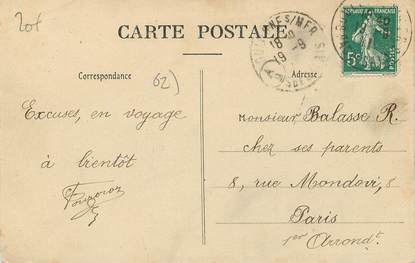 201
CARTE POSTALE
Correspondance
Adresse
62)
18-9
19
RÉPUBLIQUE FRANÇAISE
5c
POSTES
Excuses, en voyage
à bientôt
Monsieur Balasse R.
chez ses parents
8, rue Mondovi, 8
Paris
1er Arrondt.